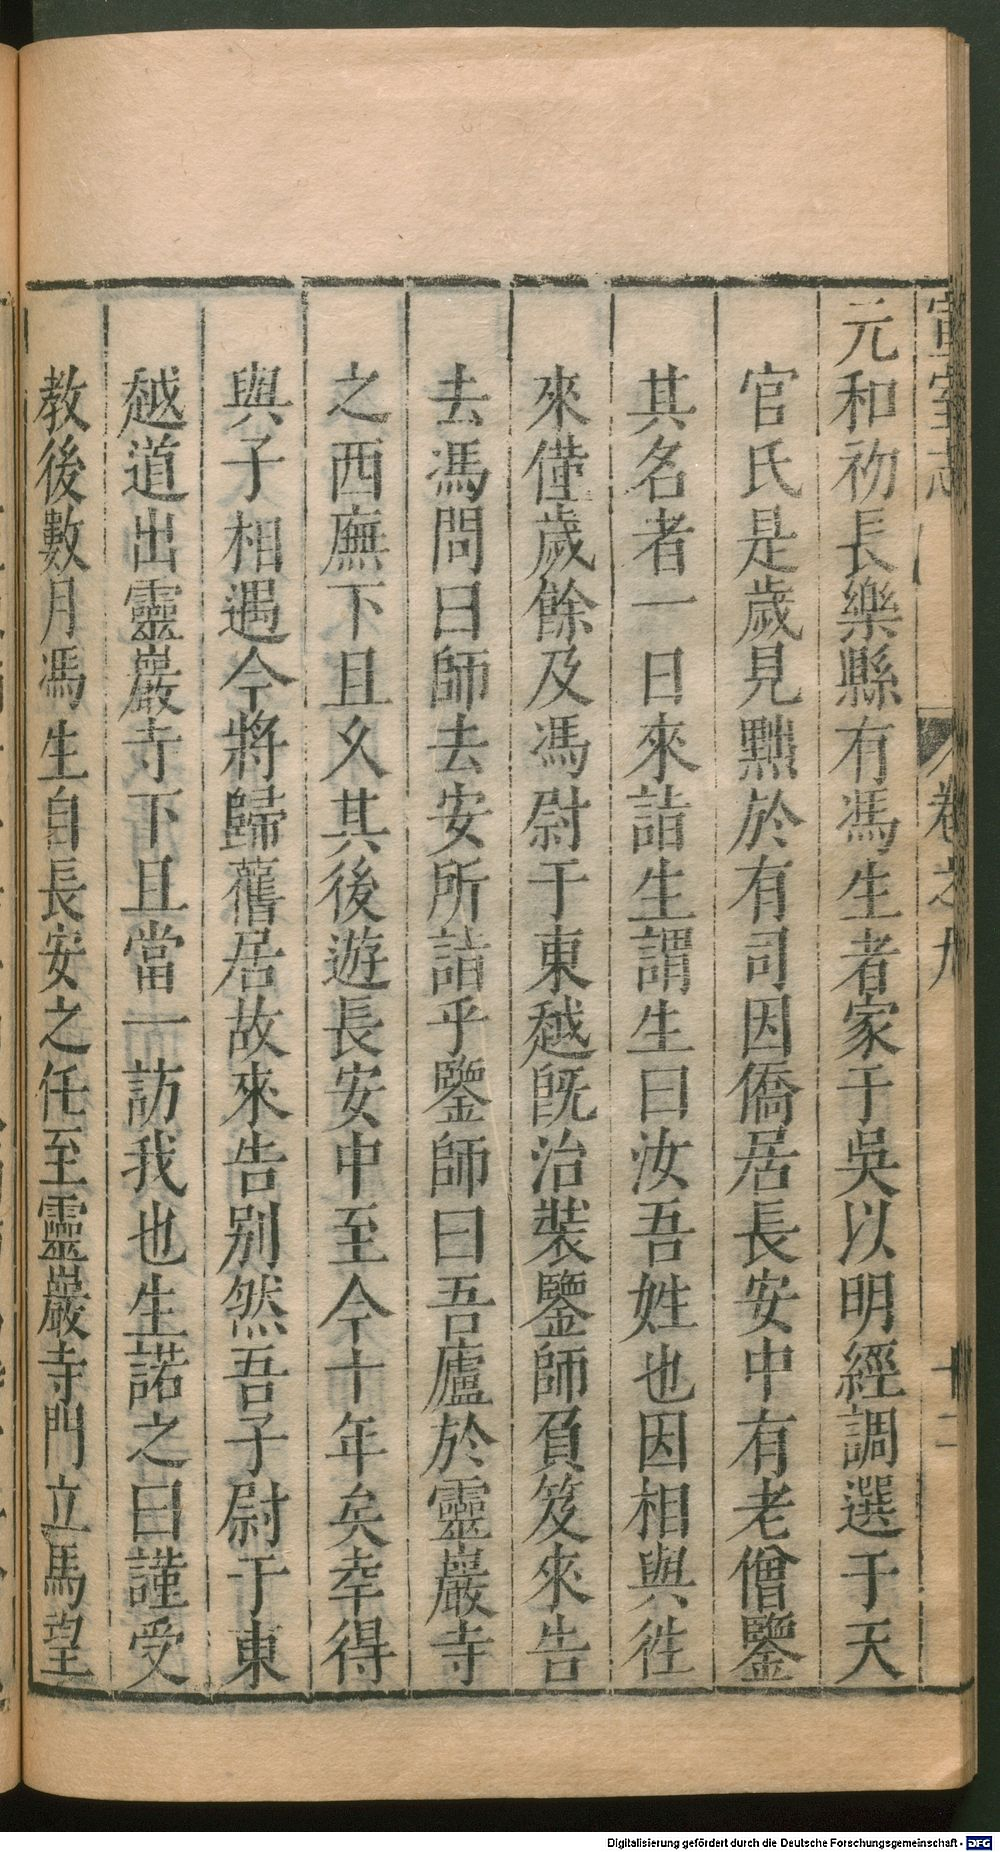 宣室志
卷之九
十二
元和初長樂縣有馮生者家于吳以明經調選于天
官氏是歲見黜於有司因僑居長安中有老僧鑒
其名者一日來詣生謂生曰汝吾姓也因相與徃
來僅歲餘及馮尉于東越既治裝鑒師負笈來告
去馮問曰師去安所詣乎鑒師曰吾廬於靈巖寺
之西廡下且久其後遊長安中至今十年矣幸得
與子相遇今將歸舊居故來告别然吾子尉于東
越道出靈巖寺下且當一訪我也生諾之曰謹受
教後數月馮生自長安之任至靈巖寺門立馬望
Digitalisierung gefördert durch die Deutsche Forschungsgemeinschaft - DFG